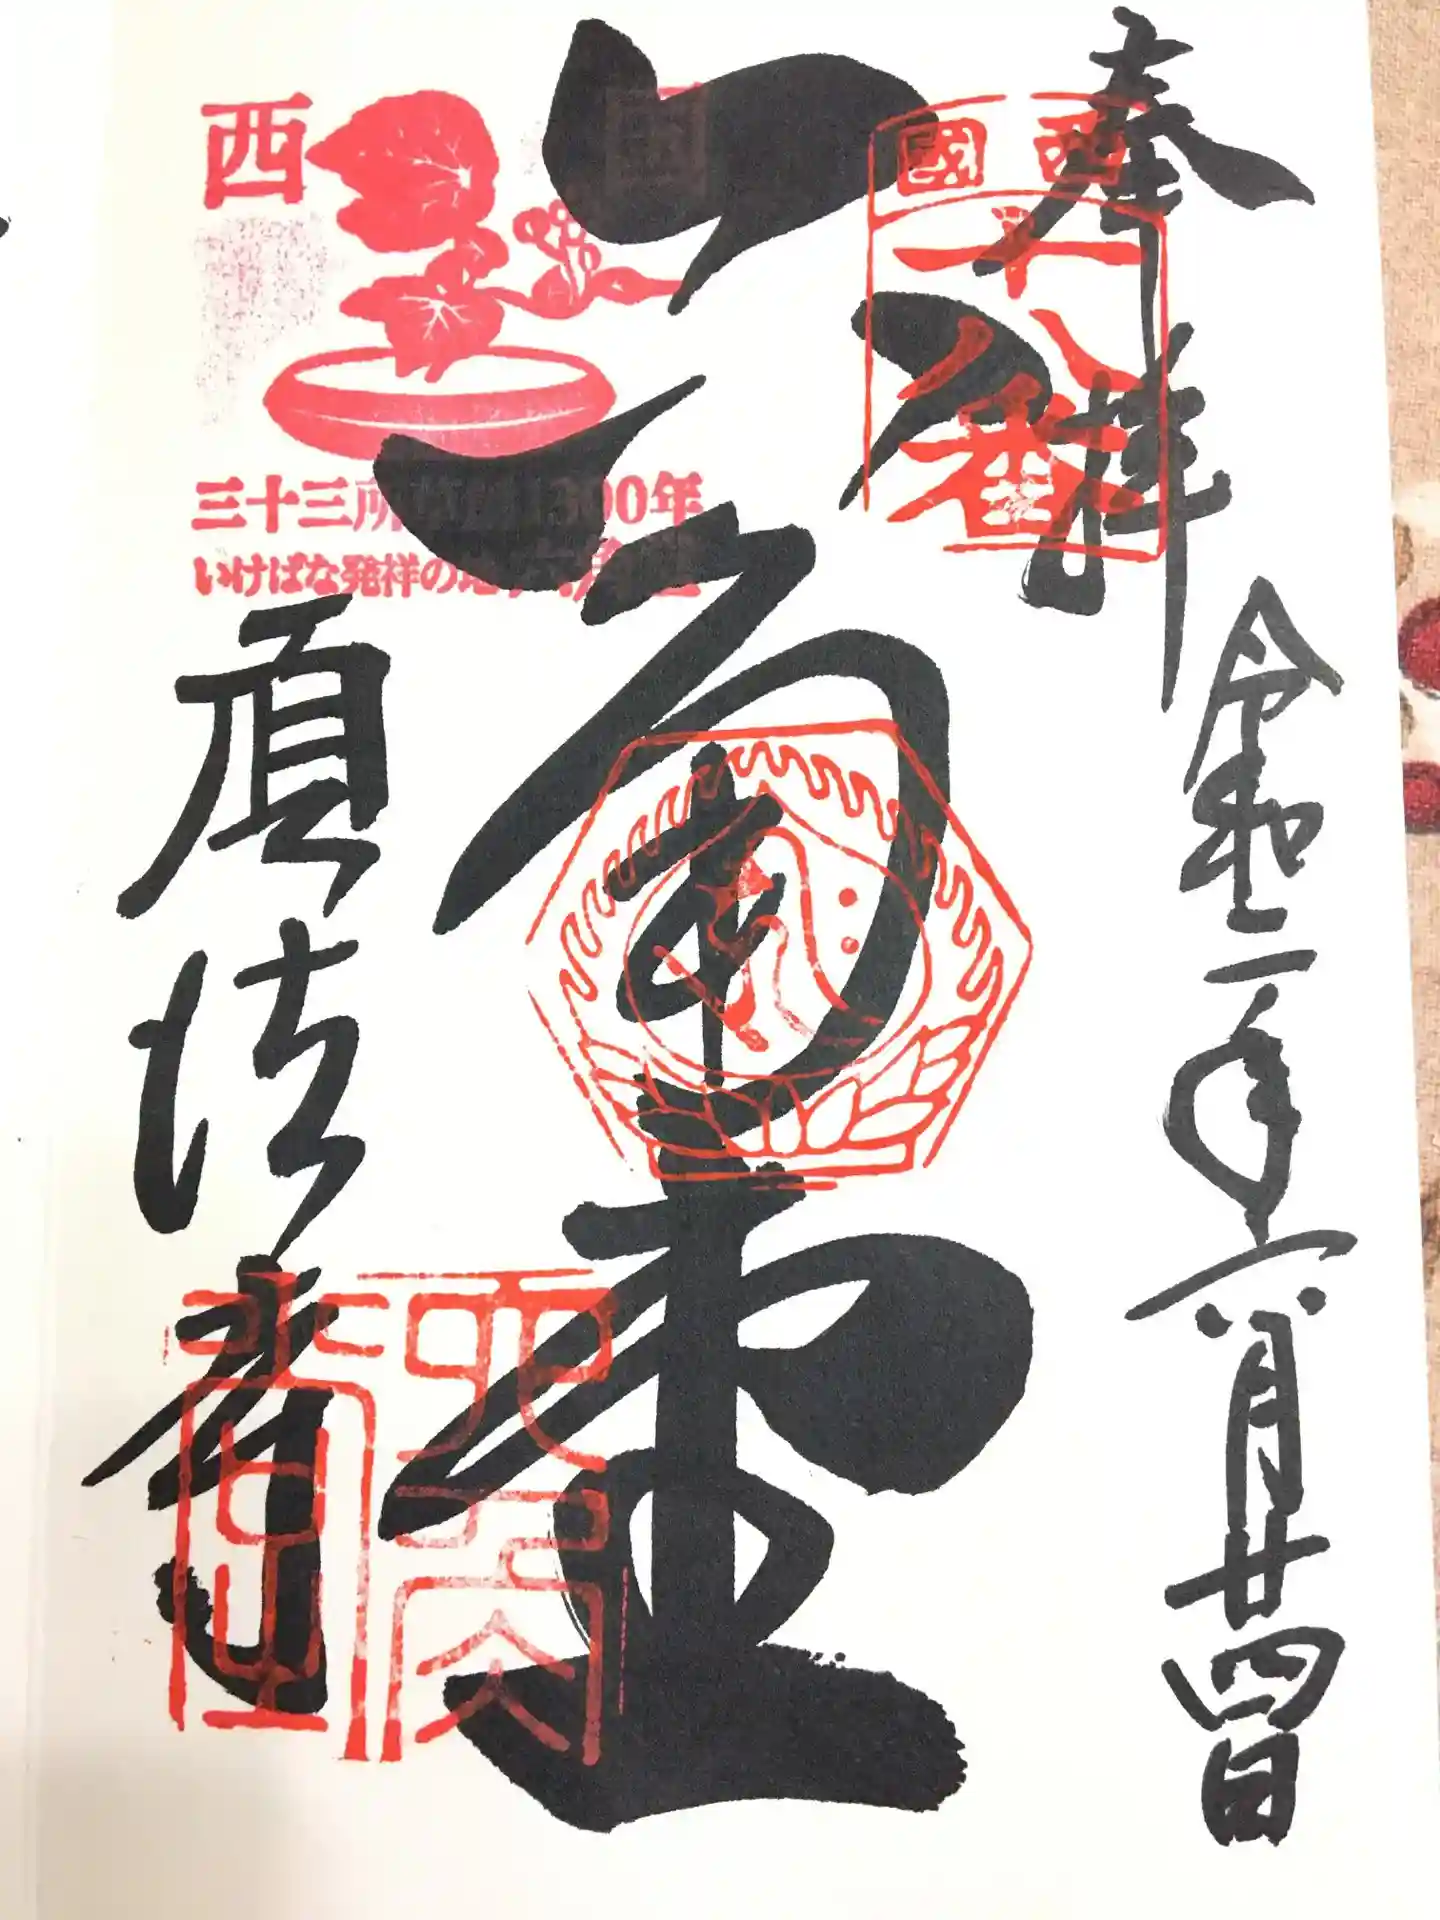 奉拝
令和二年六月廿四日
西國
十八番
六角堂
頂法寺
西国
三十三所草創1300年
いけばな発祥の地 六角堂